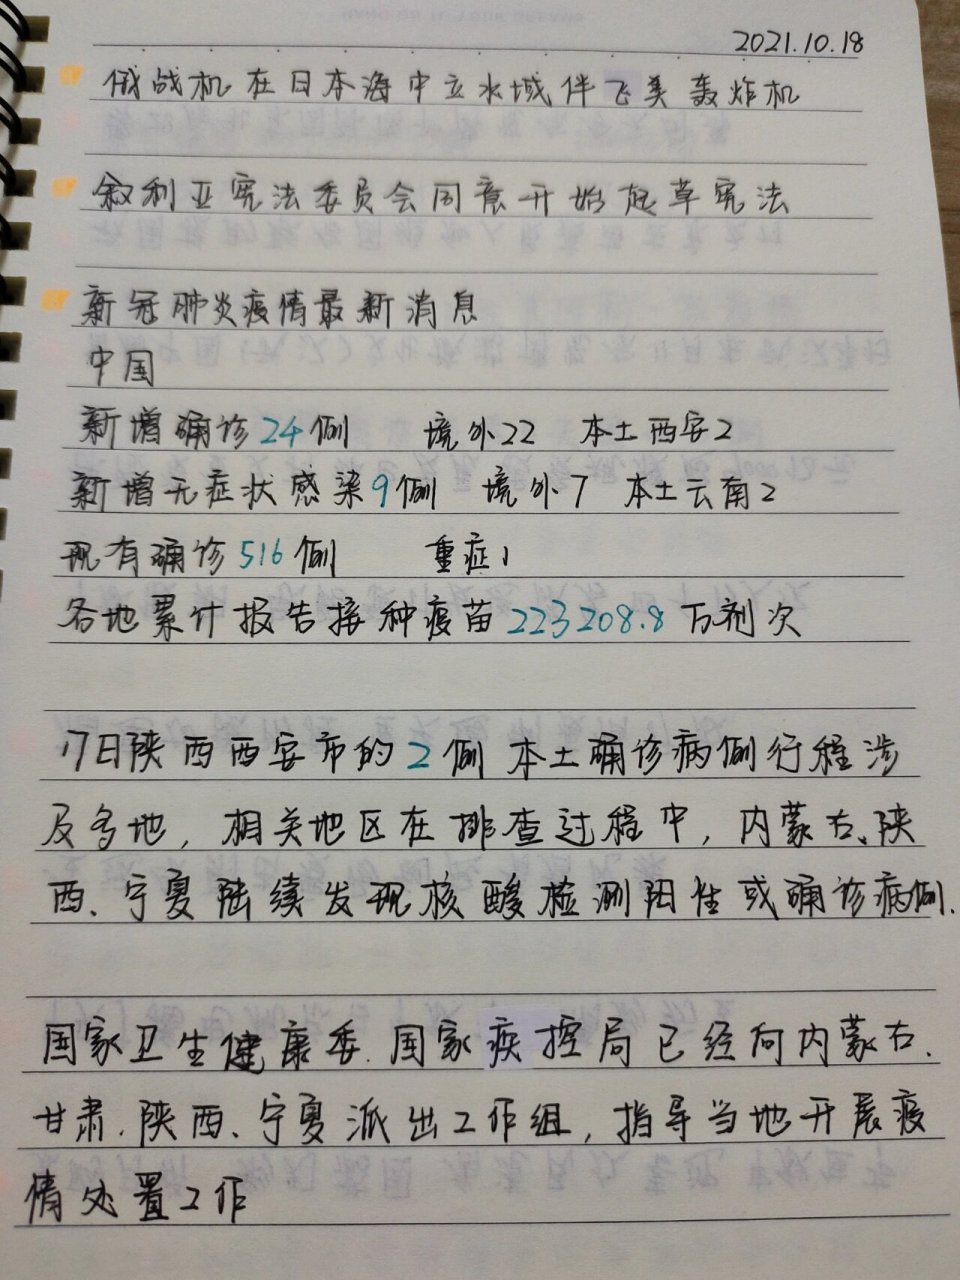 2021.10.18
俄战机在日本海中立水域伴飞美轰炸机
叙利亚宪法委员会同意开始起草宪法
新冠肺炎疫情最新消息
中国
新增确诊24例 境外22 本土西安2
新增无症状感染9例 境外7 本土云南2
现有确诊516例 重症1
各地累计报告接种疫苗223208.8万剂次
17日陕西西安市的2例本土确诊病例行程涉
及多地，相关地区在排查过程中，内蒙古、陕
西、宁夏陆续发现核酸检测阳性或确诊病例.
国家卫生健康委.国家疾控局已经向内蒙古、
甘肃.陕西、宁夏派出工作组，指导当地开展疫
情处置工作